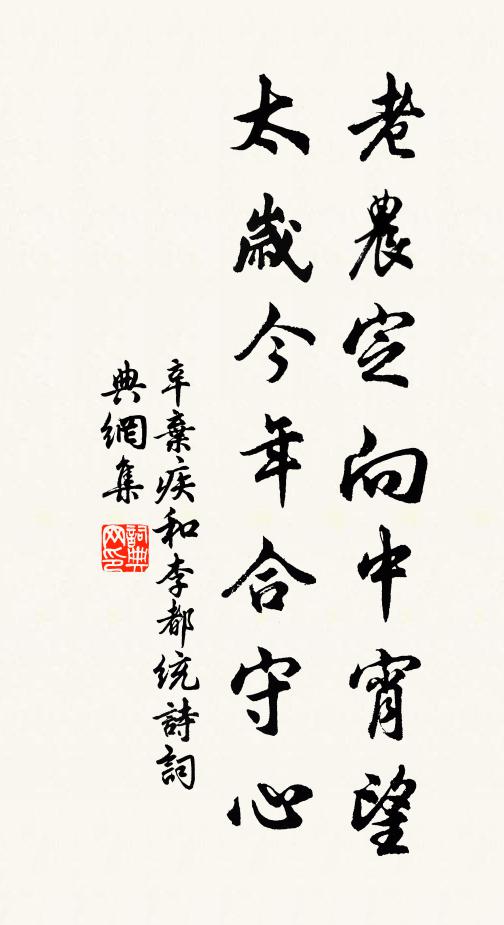 老農定向中宵望
太歲今年合守心
辛棄疾和李都統詩詞
典網集
詞典
网印